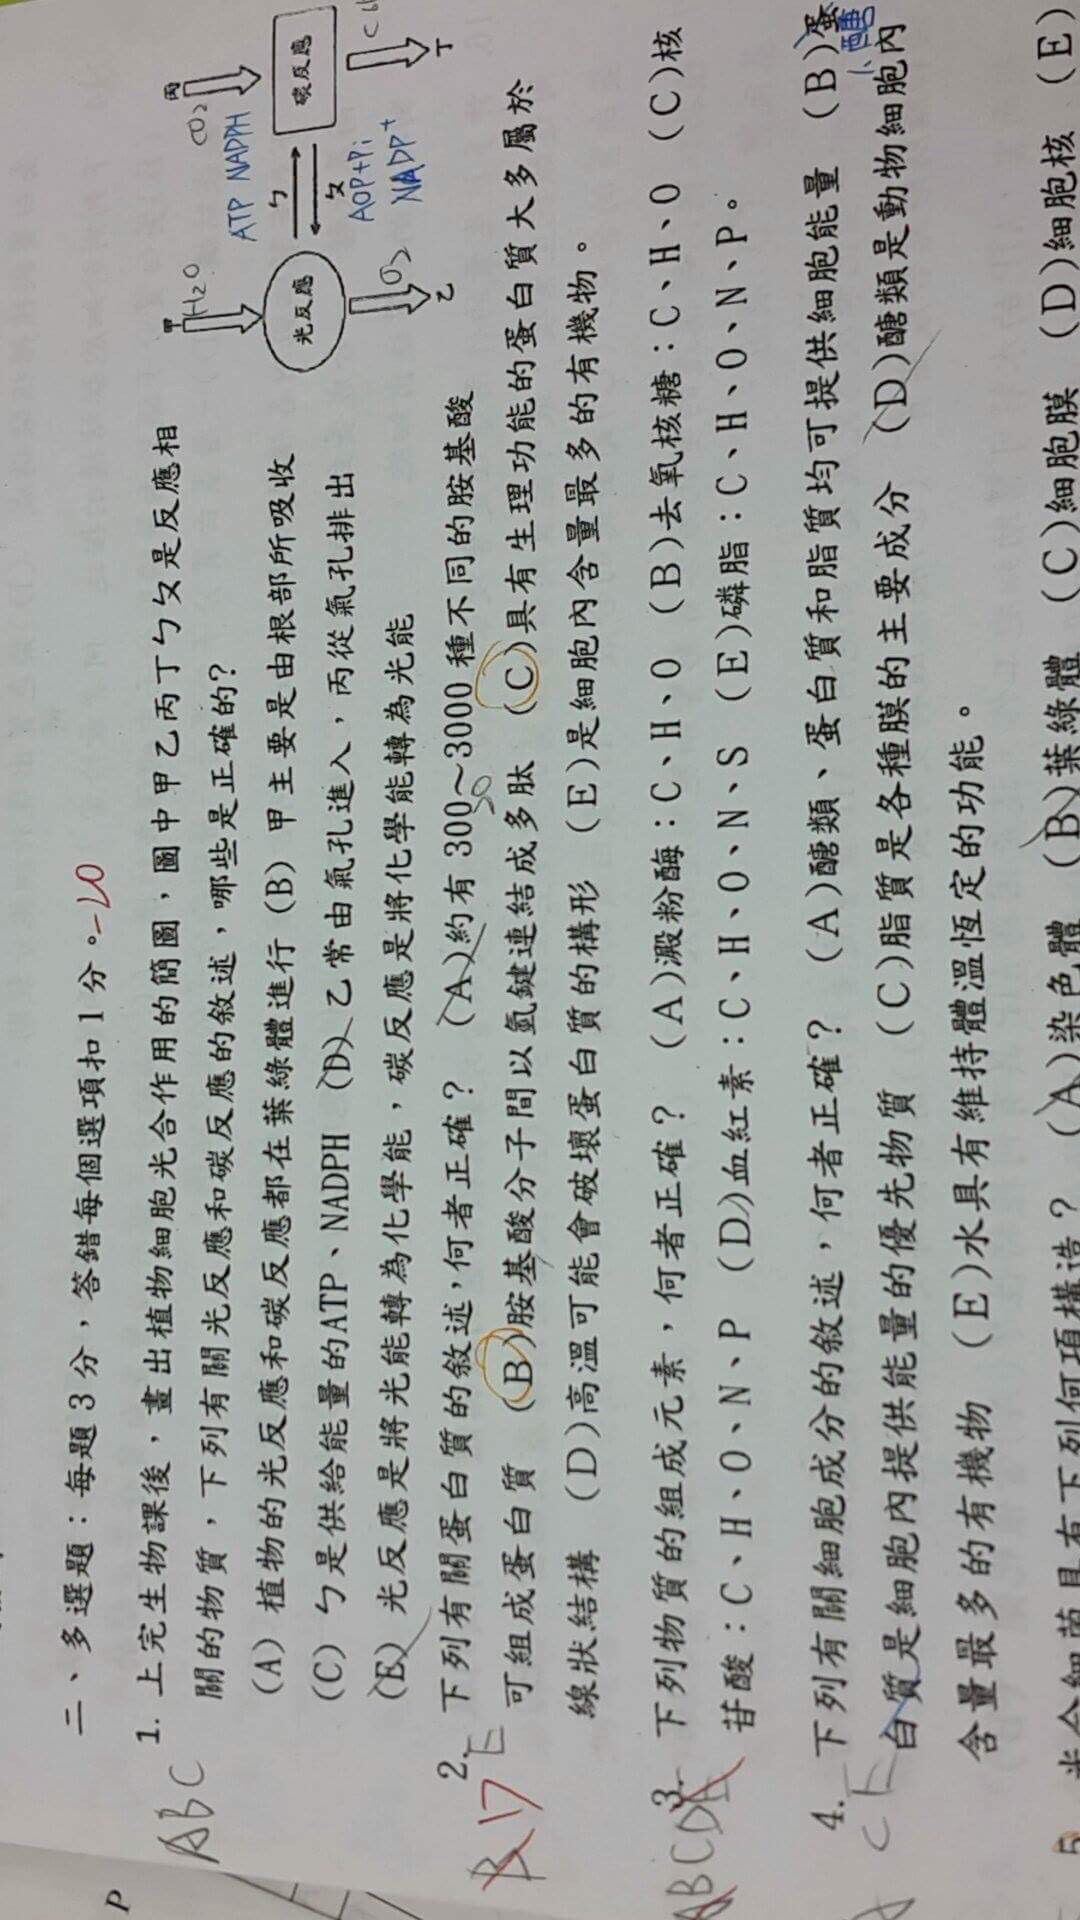 二、多選題：每題3分，答錯每個選項扣1分。-20
ABC
1. 上完生物課後，畫出植物細胞光合作用的簡圖，圖中甲乙丙丁ㄅㄆ是反應相
關的物質，下列有關光反應和碳反應的敘述，哪些是正確的?
(A) 植物的光反應和碳反應都在葉綠體進行 (B) 甲主要是由根部所吸收
(C) ㄅ是供給能量的ATP、NADPH (D) 乙常由氣孔進入，丙從氣孔排出
(E) 光反應是將光能轉為化學能，碳反應是將化學能轉為光能
甲
H2O
光反應
O2
乙
ATP NADPH
ㄅ
ㄆ
ADP+Pi
NADP+
丙
CO2
碳反應
丁
BDE
2. 下列有關蛋白質的敘述，何者正確？ (A)約有300~3000種不同的胺基酸
可組成蛋白質 (B)胺基酸分子間以氫鍵連結成多肽 (C)具有生理功能的蛋白質大多屬於
線狀結構 (D)高溫可能會破壞蛋白質的構形 (E)是細胞內含量最多的有機物。
ABCDE
3. 下列物質的組成元素，何者正確？ (A)澱粉酶：C、H、O (B)去氧核糖：C、H、O (C)核
苷酸：C、H、O、N、P (D)血紅素：C、H、O、N、S (E)磷脂：C、H、O、N、P。
A C E
4. 下列有關細胞成分的敘述，何者正確？ (A)醣類、蛋白質和脂質均可提供細胞能量 (B)蛋
醣
白質是細胞內提供能量的優先物質 (C)脂質是各種膜的主要成分 (D)醣類是動物細胞內
含量最多的有機物 (E)水具有維持體溫恆定的功能。
5.
(A)染色體 (B)葉綠體 (C)細胞膜 (D)細胞核 (E)
P